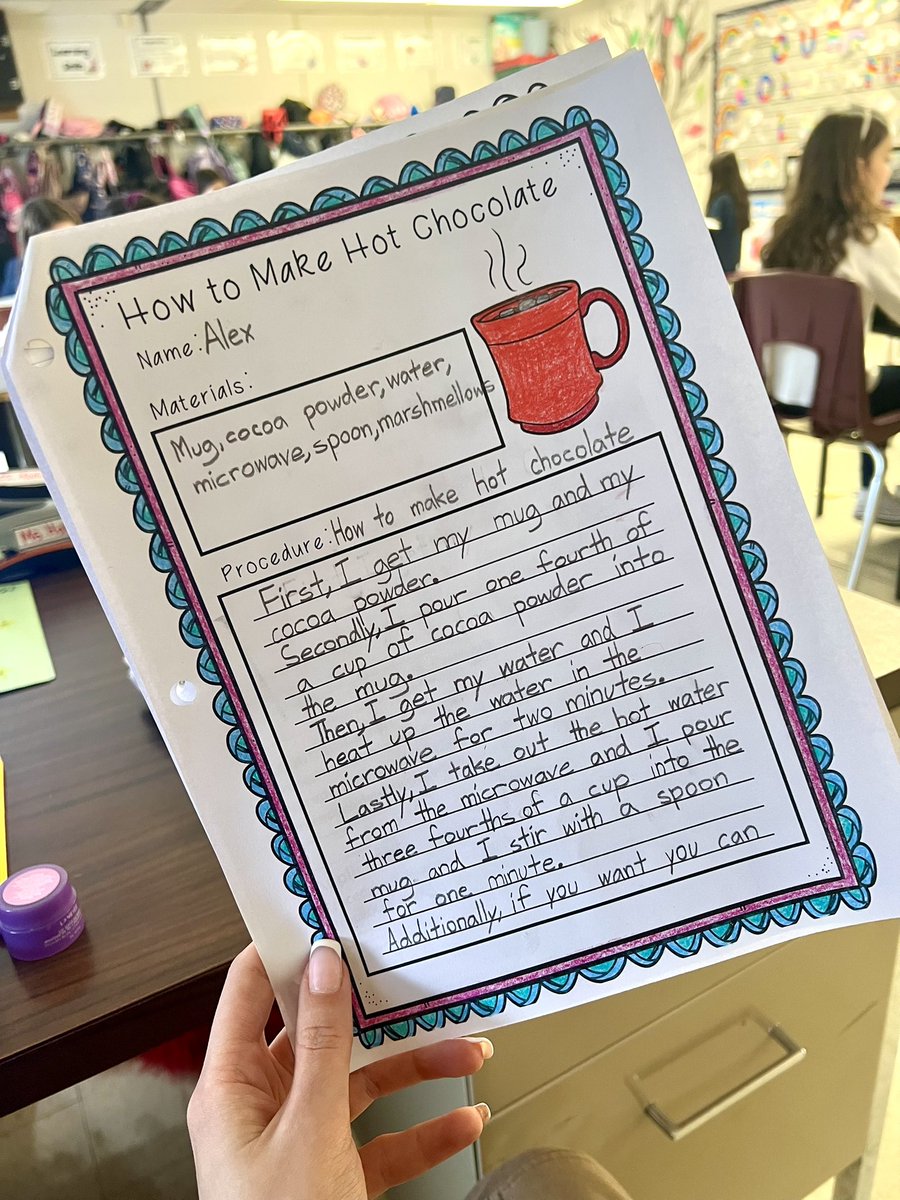 How to Make Hot Chocolate
Name: Alex
Materials:
Mug, cocoa powder, water,
microwave, spoon, marshmellows
Procedure: How to make hot chocolate
First, I get my mug and my
cocoa powder.
Secondly, I pour one fourth of
a cup of cocoa powder into
the mug.
Then, I get my water and I
heat up the water in the
microwave for two minutes.
Lastly, I take out the hot water
from the microwave and I pour
three fourths of a cup into the
mug and I stir with a spoon
for one minute.
Additionally, if you want you can